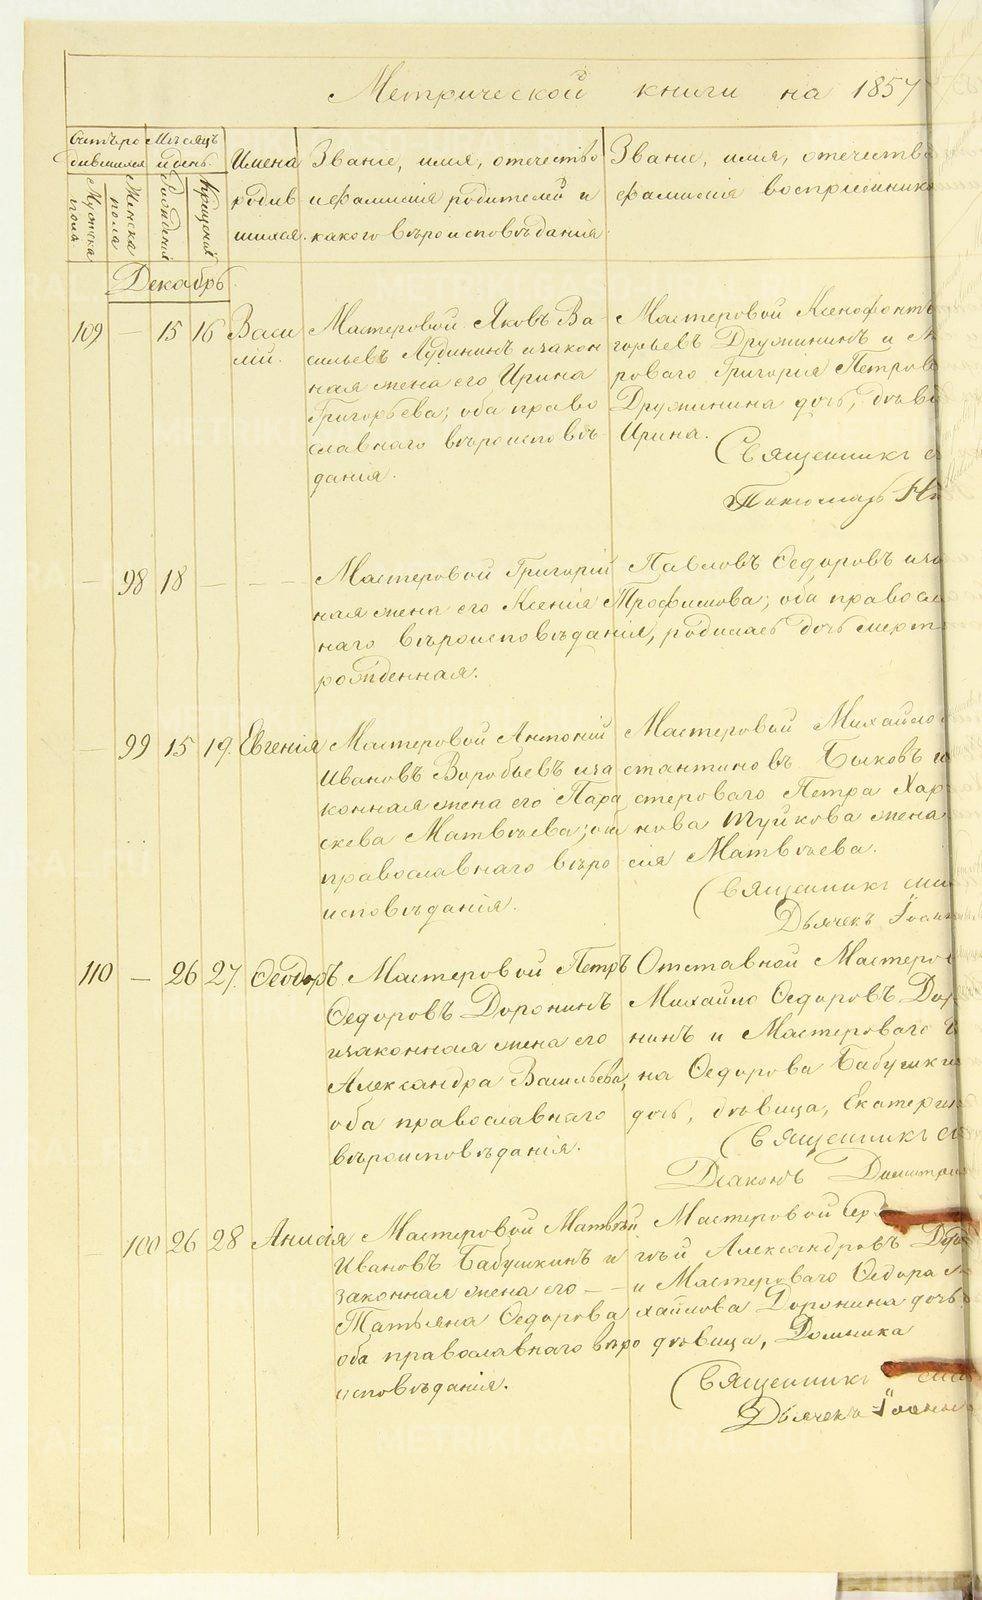 Метрической книги на 1857
Счетъ ро
дившихся
Мужска
пола
Женска
пола
Месяцъ
и день
Рожденія
Крещенія
Имена
родив
шихся.
Званіе, имя, отечество
и фамилія родителей и
какого вѣроисповѣданія
Званіе, имя, отечество
фамилія воспріемнико
Декабрь
109 — 15 16 Васи
лій.
Мастеровой Яковъ Ва-
сильевъ Лудининъ и закон
ная жена его Ирина
Григорьева; оба право
славнаго вѣроисповѣ-
данія.
Мастеровой Ксенофонтъ
горьевъ Дружининъ и
роваго Григорія Петрова
Дружинина дочь, дѣви
Ирина.
Священникъ
Пономарь
— 98 18 — — —
Мастеровой Григорій Павловъ Ѳедоровъ и за
ная жена его Ксенія Трофимова; оба правосла
наго вѣроисповѣданія, родилась дочь мерт
рожденная.
— 99 15 19. Евгенія
Мастеровой Антоній
Ивановъ Воробьевъ и за
конная жена его Пара
скева Матвѣева; оба
православнаго вѣро
исповѣданія.
Мастеровой Михайло
стантиновъ Быковъ и
стероваго Петра Хар
нова Шуйкова жена
сія Матвѣева.
Священникъ
Дьячекъ Іоанн
110 — 26 27. Ѳеодоръ
Мастеровой Петръ
Ѳедоровъ Доронинъ
и законная жена его
Александра Васильева,
оба православнаго
вѣроисповѣданія.
Отставной Мастеро
Михайло Ѳедоровъ Дор
нинъ и Мастероваго
на Ѳедорова Бабушки
дочь, дѣвица, Екатерин
Священникъ
Діаконъ Димитрі
— 100 26 28 Анисія
Мастеровой Матвѣй
Ивановъ Бабушкинъ и
законная жена его —
Татьяна Ѳедорова
оба православнаго вѣро
исповѣданія.
Мастеровой Сер
гѣй Александровъ Дор
— и Мастероваго Ѳедора
хайлова Доронина дочь
дѣвица, Домника
Священникъ
Дьячекъ Іоанн
METRIKI.GASO-URAL.RU